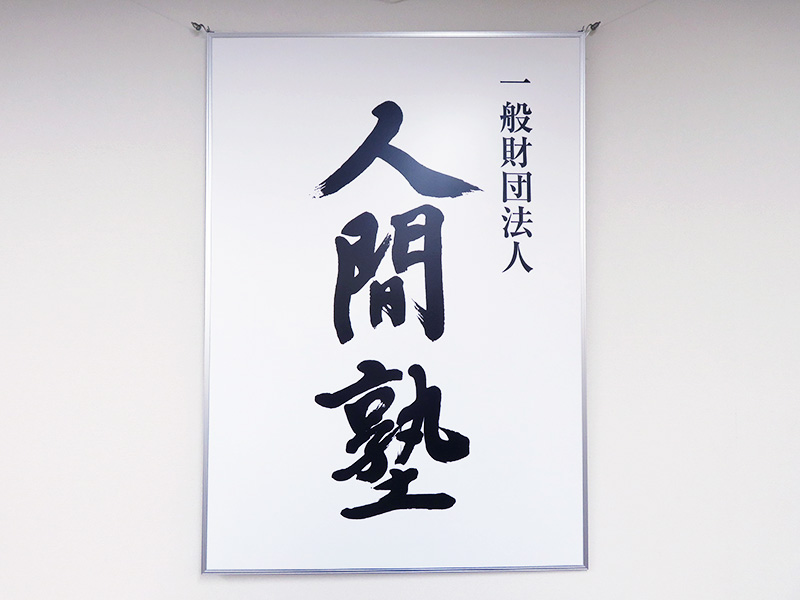 一般財団法人
人間塾